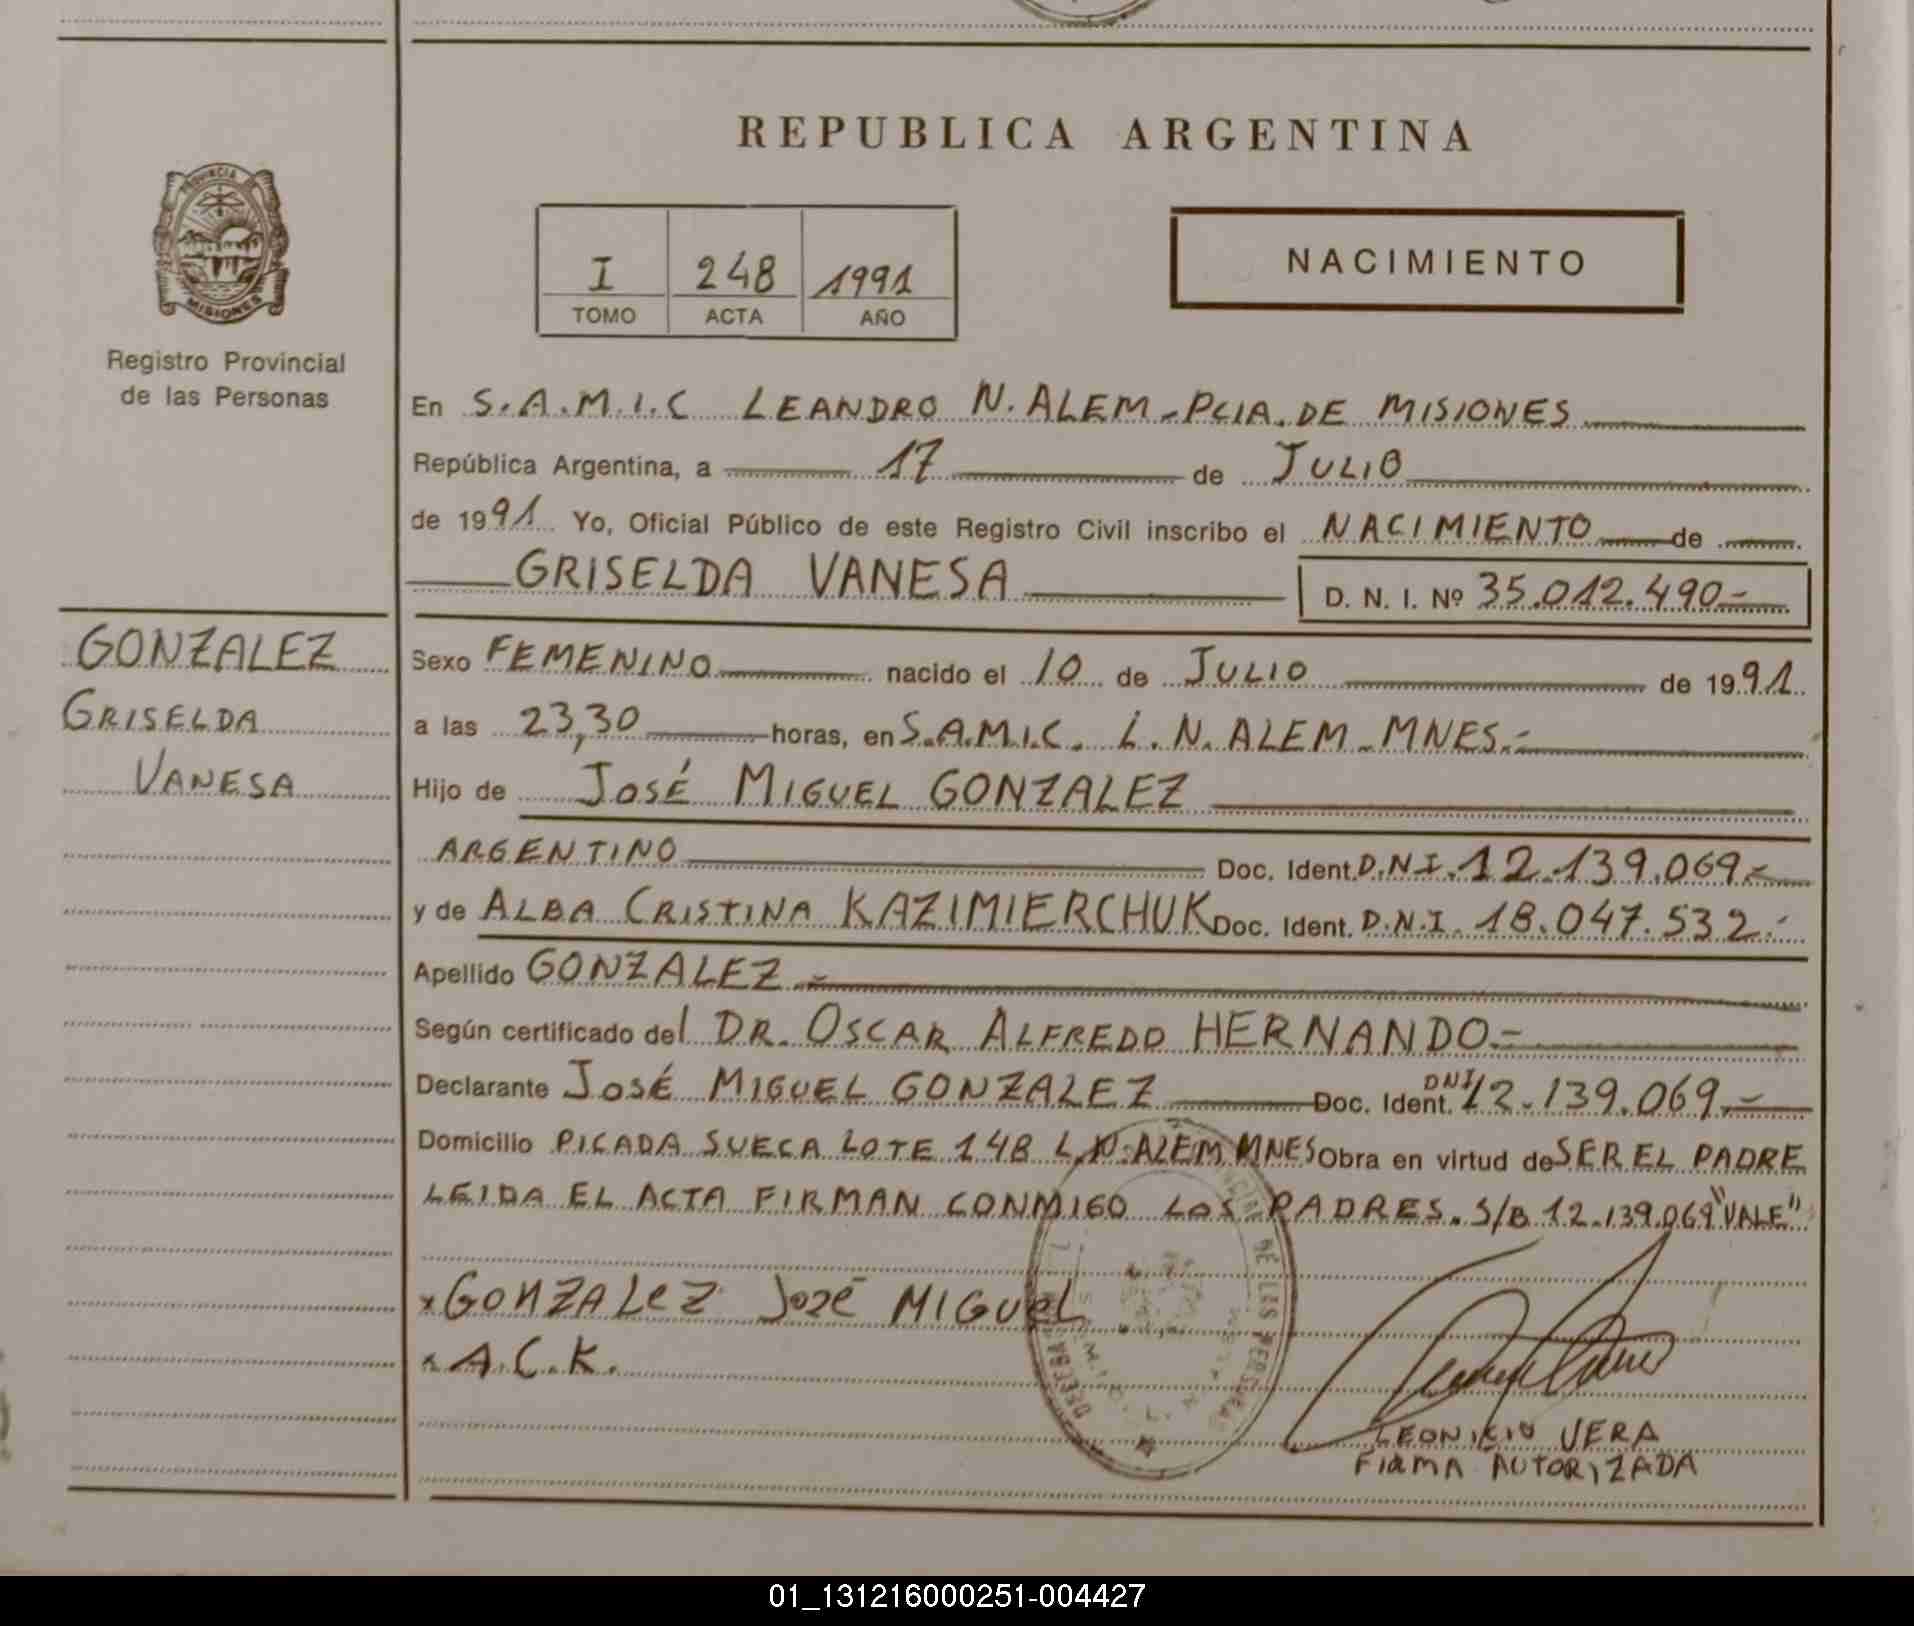 REPUBLICA ARGENTINA
I 248 1991
TOMO ACTA AÑO
NACIMIENTO
PROVINCIA DE
MISIONES
Registro Provincial
de las Personas
GONZALEZ
GRISELDA
VANESA
En S.A.M.I.C LEANDRO N. ALEM - PCIA. DE MISIONES
República Argentina, a 17 de JULIO
de 1991 Yo, Oficial Público de este Registro Civil inscribo el NACIMIENTO de
GRISELDA VANESA D. N. I. Nº 35.012.490-
Sexo FEMENINO nacido el 10 de JULIO de 1991
a las 23,30 horas, en S.A.M.I.C. L. N. ALEM - MNES.-
Hijo de JOSÉ MIGUEL GONZALEZ
ARGENTINO Doc. Ident. D.N.I. 12.139.069.-
y de ALBA CRISTINA KAZIMIERCHUK Doc. Ident. D.N.I. 18.047.532.-
Apellido GONZALEZ.-
Según certificado del DR. OSCAR ALFREDO HERNANDO.-
Declarante JOSÉ MIGUEL GONZALEZ Doc. Ident. DNI 12.139.069.-
Domicilio PICADA SUECA LOTE 148 L.N.ALEM MNES Obra en virtud de SER EL PADRE
LEIDA EL ACTA FIRMAN CONMIGO LOS PADRES. S/B 12.139.069 "VALE"
x GONZALEZ JOSÉ MIGUEL
x A.C.K.
VERA
FIRMA AUTORIZADA
01_131216000251-004427